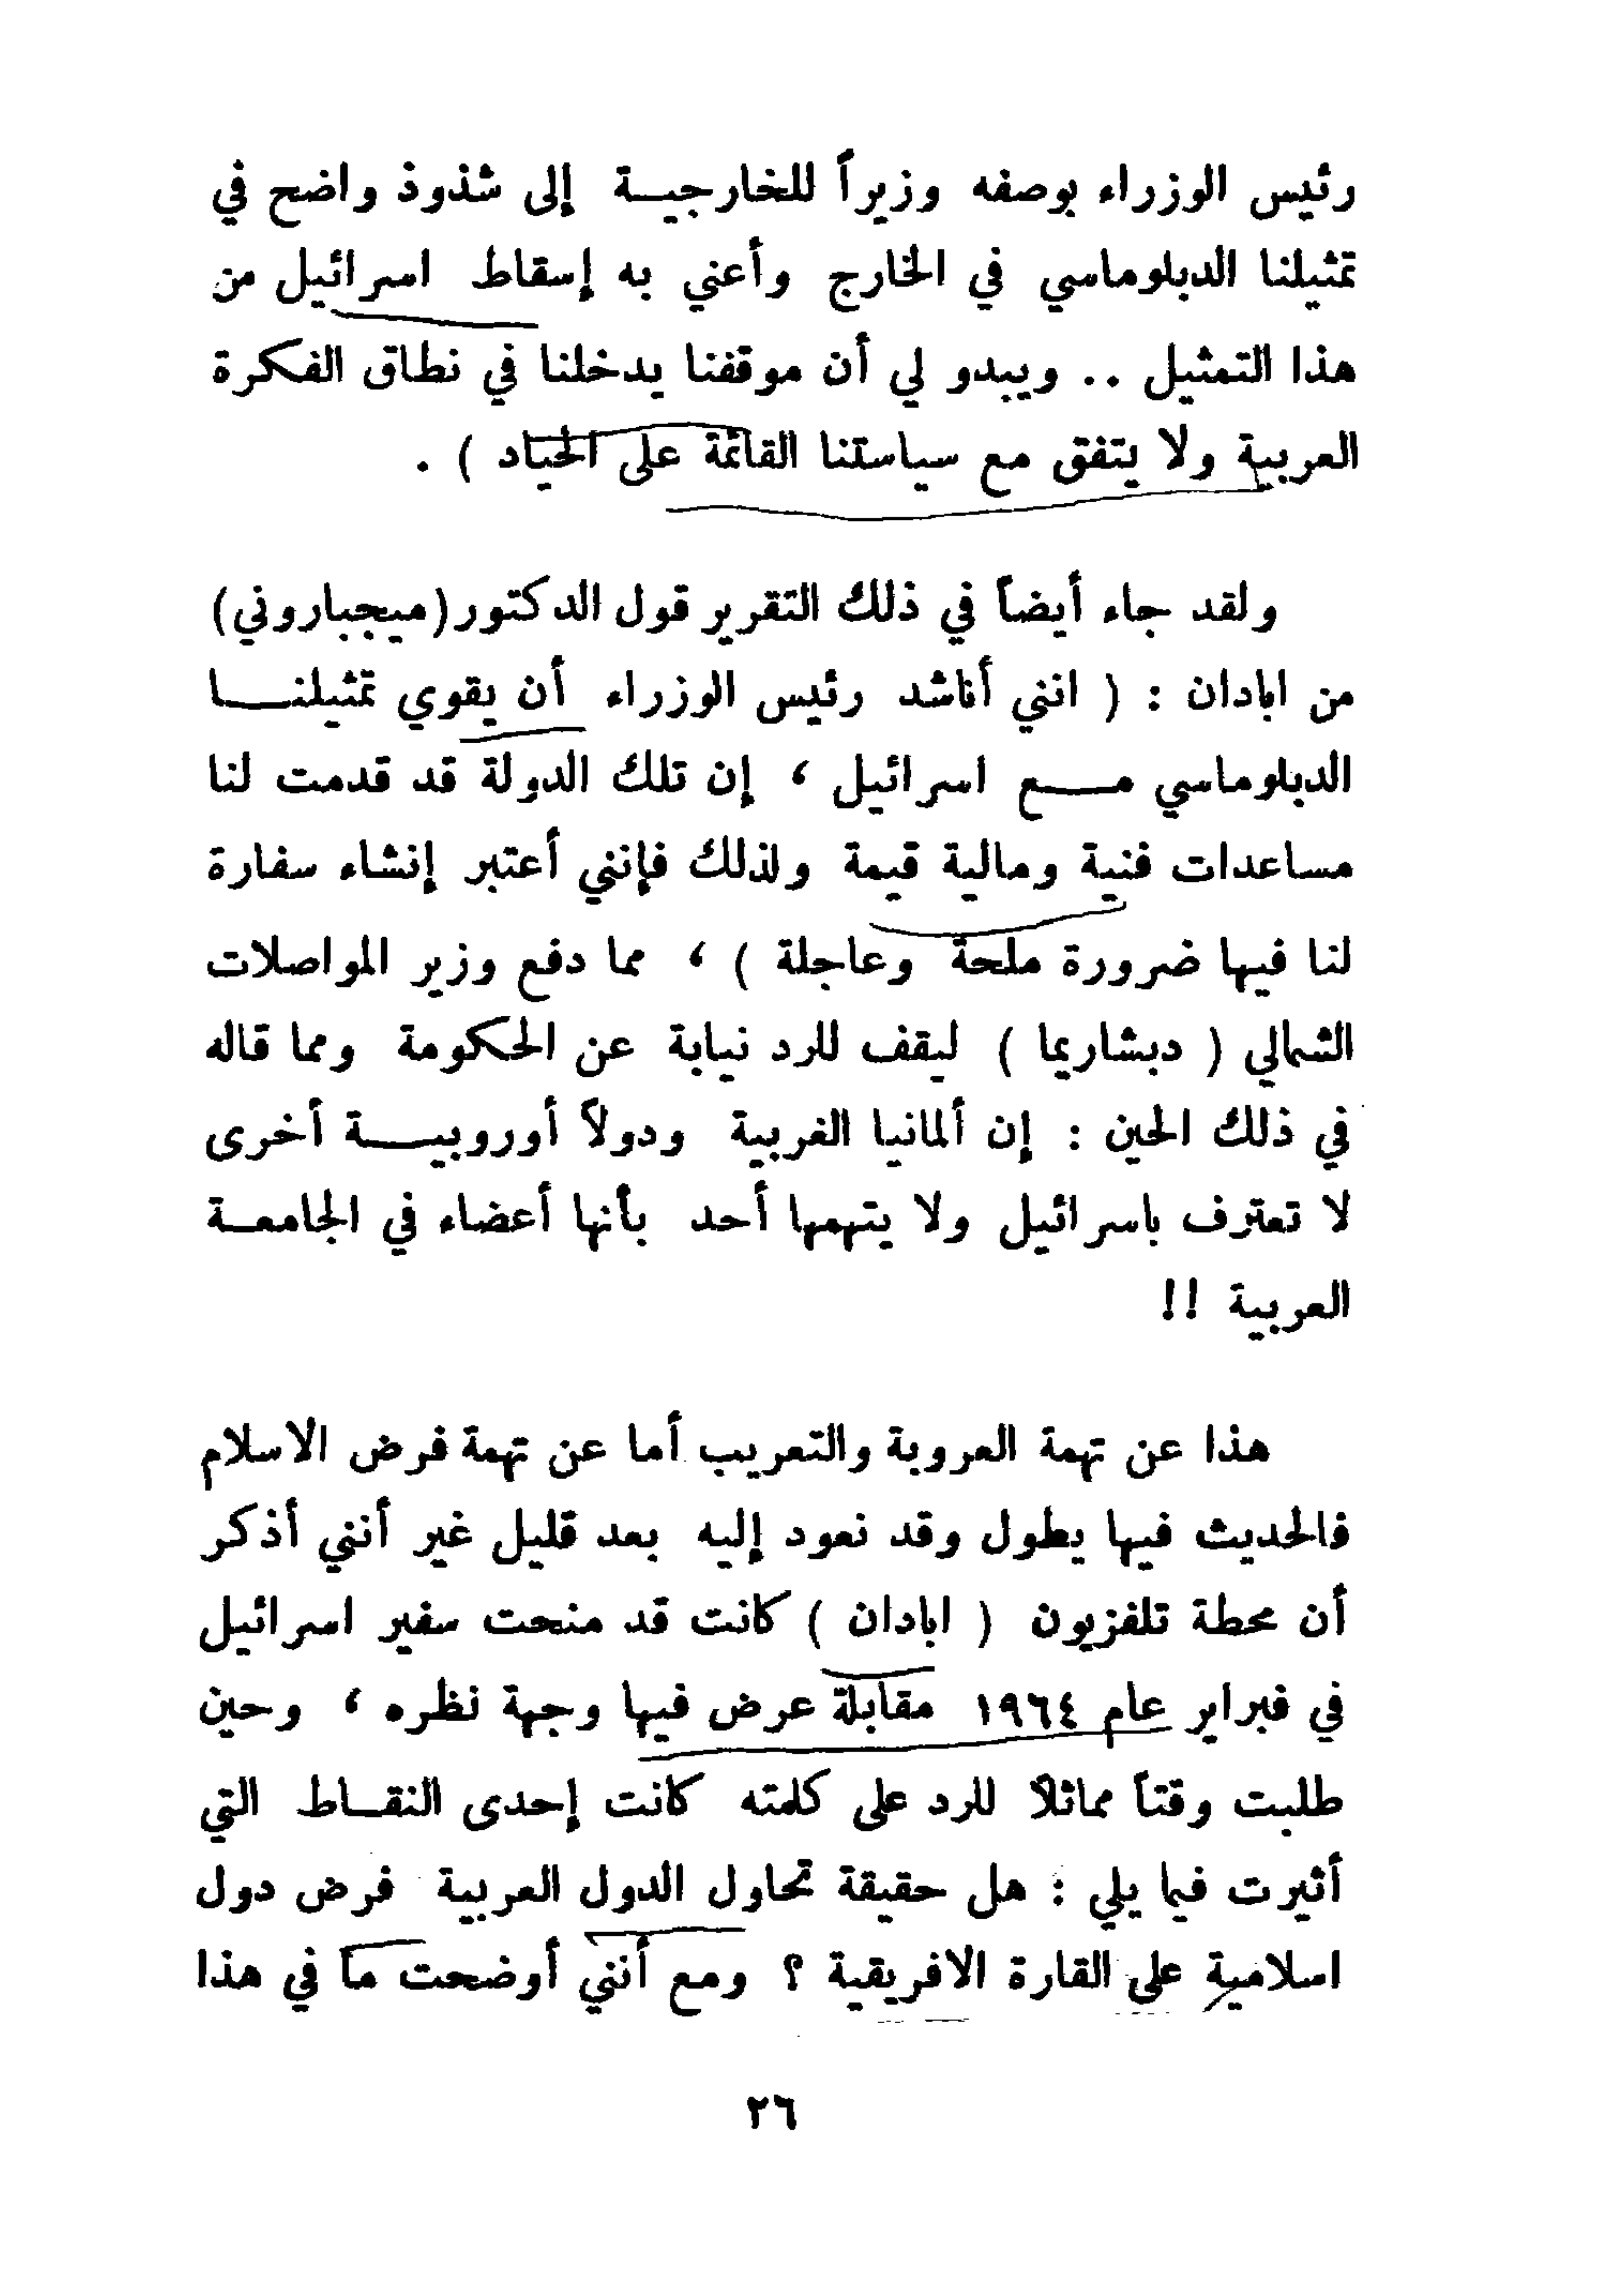 رئيس الوزراء بوصفه وزيراً للخارجيـة إلى شذوذ واضح في
تمثيلنا الدبلوماسي في الخارج وأعني به إسقاط اسرائيل من
هذا التمثيل .. ويبدو لي أن موقفنا يدخلنا في نطاق الفكرة
العربية ولا يتفق مع سياستنا القائمة على الحياد ) .
ولقد جاء أيضاً في ذلك التقرير قول الدكتور (ميجباروني)
من ابادان : ( انني أناشد رئيس الوزراء أن يقوي تمثيلنـــا
الدبلوماسي مـــع اسرائيل ، إن تلك الدولة قد قدمت لنا
مساعدات فنية ومالية قيمة ولذلك فإنني أعتبر إنشاء سفارة
لنا فيها ضرورة ملحة وعاجلة ) ، مما دفع وزير المواصلات
الشمالي ( دبشاريما ) ليقف للرد نيابة عن الحكومة ومما قاله
في ذلك الحين : إن ألمانيا الغربية ودولاً أوروبيـــة أخرى
لا تعترف باسرائيل ولا يتهمها أحد بأنها أعضاء في الجامعـة
العربية !!
هذا عن تهمة العروبة والتعريب أما عن تهمة فرض الاسلام
فالحديث فيها يطول وقد نعود إليه بعد قليل غير أنني أذكر
أن محطة تلفزيون ( ابادان ) كانت قد منحت سفير اسرائيل
في فبراير عام ١٩٦٤ مقابلة عرض فيها وجهة نظره ، وحين
طلبت وقتاً مماثلاً للرد على كلمته كانت إحدى النقـاط التي
أثيرت فيما يلي : هل حقيقة تحاول الدول العربية فرض دول
اسلامية على القارة الافريقية ؟ ومع أنني أوضحت ما في هذا
٢٦